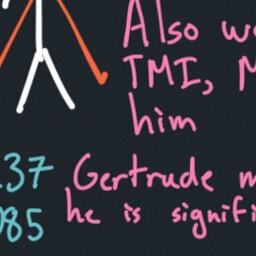 Also w
TMI, M
him
37 Gertrude m
985 he is signifi